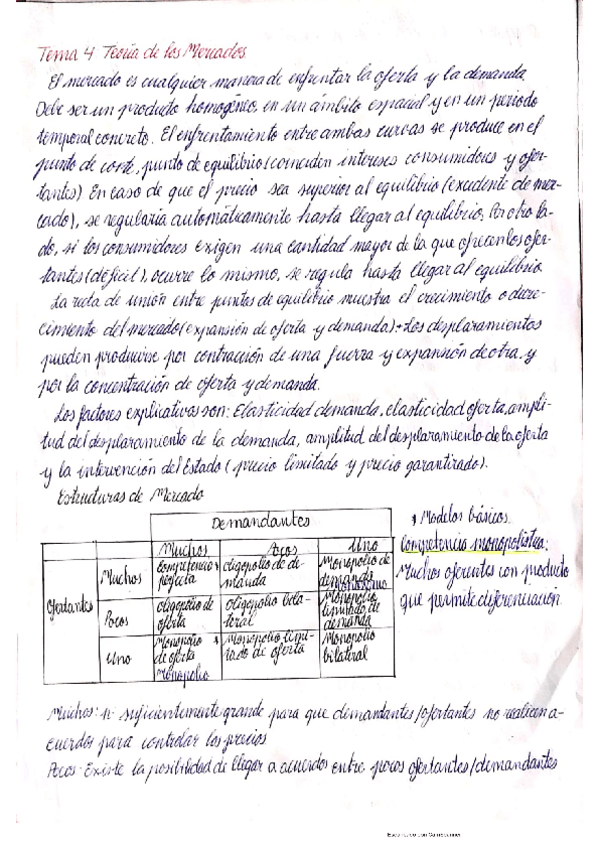 Tema 4 Teoría de los Mercados.
El mercado es cualquier manera de enfrentar la oferta y la demanda
Debe ser un producto homogéneo, en un ámbito espacial y en un periodo
temporal concreto. El enfrentamiento entre ambas curvas se produce en el
punto de corte, punto de equilibrio (coinciden intereses consumidores y ofer-
tantes) En caso de que el precio sea superior al equilibrio (excedente de mer-
cado), se regularía automáticamente hasta llegar al equilibrio. Por otro la-
do, si los consumidores exigen una cantidad mayor de la que ofrecen los ofer-
tantes (déficit), ocurre lo mismo, se regula hasta llegar al equilibrio.
La recta de unión entre puntos de equilibrio muestra el crecimiento o decre-
cimiento del mercado (expansión de oferta y demanda) Los desplazamientos
pueden producirse por contración de una fuerza y expansión de otra, y
por la concentración de oferta y demanda.
Los factores explicativos son: Elasticidad demanda, elasticidad oferta, ampli-
tud del desplazamiento de la demanda, amplitud del desplazamiento de la oferta
y la intervención del Estado (precio limitado y precio garantizado).
Estructuras de Mercado
Demandantes
Muchos Pocos Uno
Ofertantes
Muchos competencia perfecta oligopolio de de-manda Monopolio de demanda Monopsonio
Pocos oligopolio de oferta oligopolio bila-teral Monopolio limitado de demanda
Uno Monopolio de oferta Monopolio Monopolio limi-tado de oferta Monopolio bilateral
Modelos básicos.
Competencia monopolística:
Muchos oferentes con producto
que permite diferenciación.
Muchos: nº suficientemente grande para que demandantes/ofertantes no realicen a-
cuerdos para controlar los precios
Pocos: Existe la posibilidad de llegar a acuerdos entre pocos ofertantes/demandantes
Escaneado con CamScanner